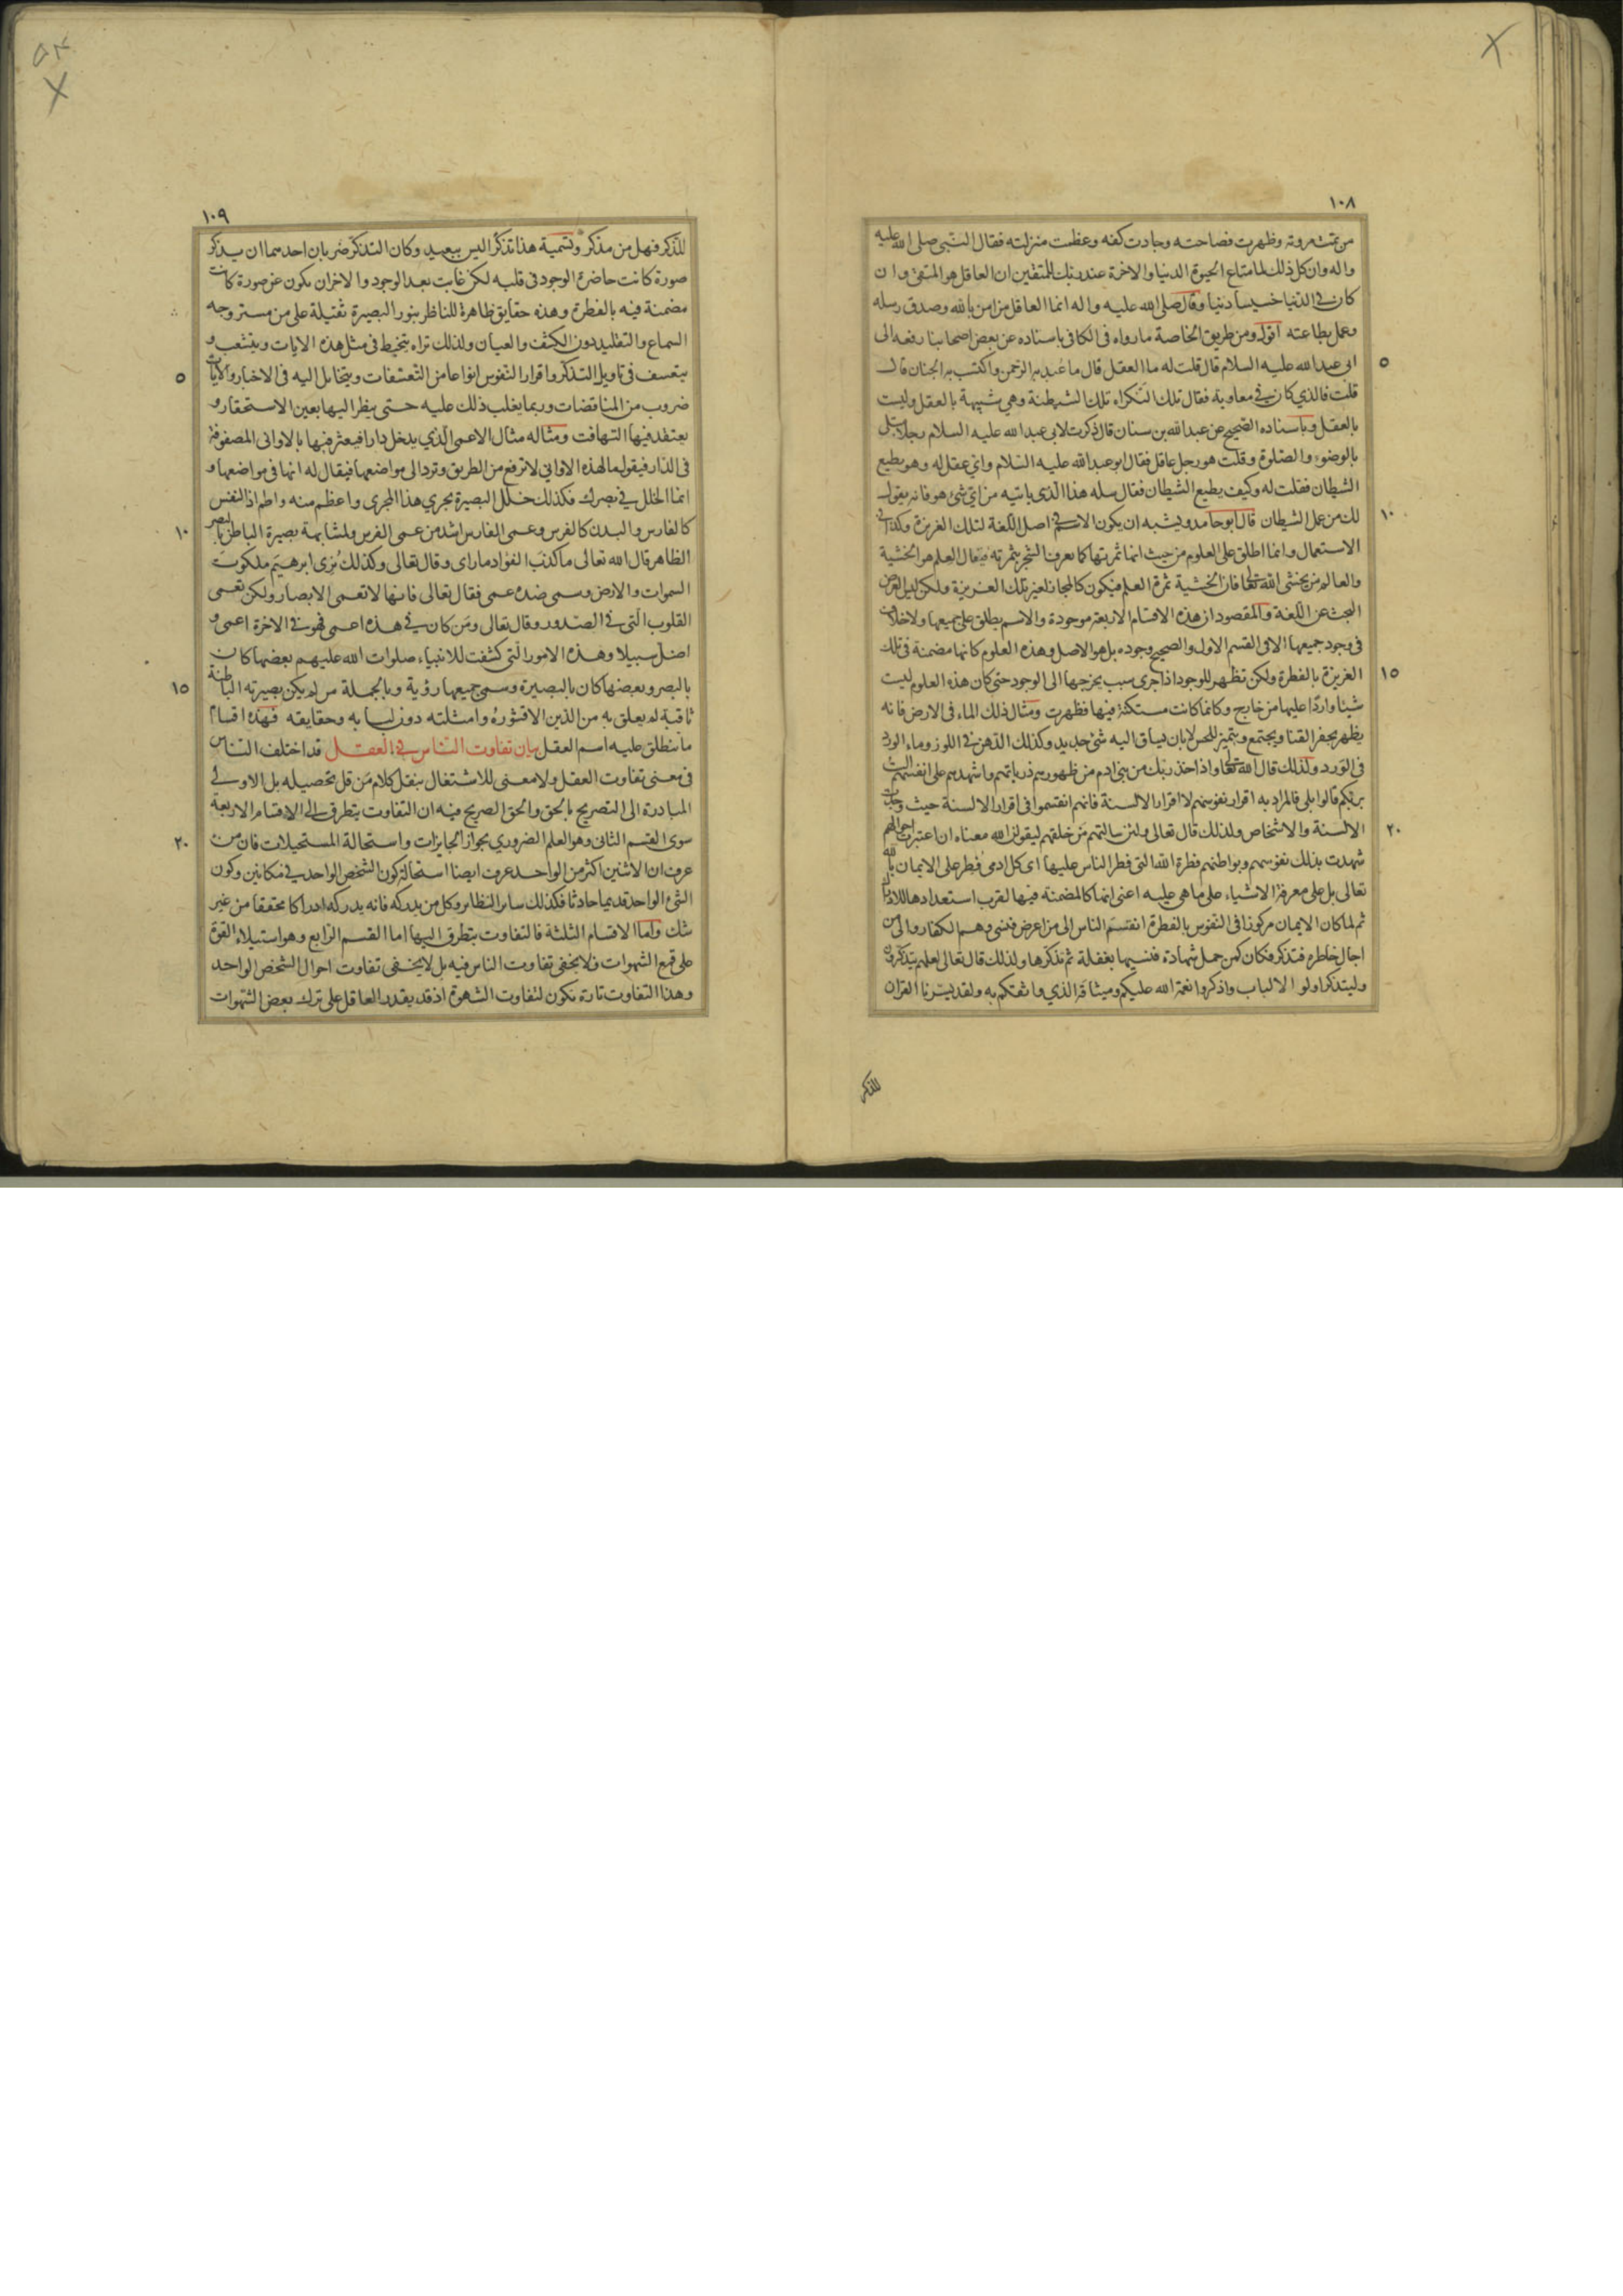 ١٠٨
من تمت مروته وظهرت فصاحته وجادت كفه وعظمت منزلته فقال النبي صلى الله عليه
واله وان كل ذلك لما متاع الحيوة الدنيا والاخرة عند ربك للمتقين ان العاقل هو المتقى وان
كان في الدنيا خسيسا دنيا وقال صلى الله عليه واله انما العاقل من امن بالله وصدق رسله
وعمل بطاعته اقول ومن طريق الخاصة ما رواه في الكافي باسناده عن بعض اصحابنا رفعه الى
٥
ابى عبد الله عليه السلام قال قلت له ما العقل قال ما عبد به الرحمن واكتسب به الجنان قال
قلت فالذي كان في معاوية فقال تلك النكراء تلك الشيطنة وهي شبيهة بالعقل وليست
بالعقل وباسناده الصحيح عن عبد الله بن سنان قال ذكرت لابى عبد الله عليه السلام رجلا مبتلى
بالوضوء والصلوة وقلت هو رجل عاقل فقال ابو عبد الله عليه السلام واي عقل له وهو يطيع
الشيطان فقلت له وكيف يطيع الشيطان فقال سله هذا الذى ياتيه من اي شئ هو فانه يقول
١٠
لك من عمل الشيطان قال ابو حامد ويشبه ان يكون الاسم في اصل اللغة لتلك الغريزة وكذا في
الاستعمال وانما اطلق على العلوم من حيث انها ثمرتها كما يعرف الشجر بثمرته فيقال العلم هو الخشية
والعالم من يخشى الله تعالى فان الخشية ثمرة العلم فيكون كالمجاز لغير تلك الغريزة ولكن ليس الغرض
البحث عن اللغة والمقصود ان هذه الاقسام الاربعة موجودة والاسم يطلق على جميعها ولا خلاف
في وجود جميعها الا في القسم الاول والصحيح وجوده بل هو الاصل وهذه العلوم كانها مضمنة في تلك
١٥
الغريزة بالفطرة ولكن تظهر للوجود اذا جرى سبب يخرجها الى الوجود حتى كان هذه العلوم ليست
شيئا واردا عليها من خارج وكانها كانت مستكنة فيها فظهرت ومثال ذلك الماء في الارض فانه
يظهر بحفر القنا ويجتمع ويتميز للحس لا بان يساق اليه شئ جديد وكذلك الدهن في اللوز وماء الورد
في الورد ولذلك قال الله تعالى واذ اخذ ربك من بني ادم من ظهورهم ذرياتهم واشهدهم على انفسهم الست
بربكم قالوا بلى فالمراد به اقرار نفوسهم لا اقرار الالسنة فانهم انقسموا في اقرار الالسنة حيث وجدت
٢٠
الالسنة والاشخاص ولذلك قال تعالى ولئن سالتهم من خلقهم ليقولن الله معناه ان اعتبرت احوالهم
شهدت بذلك نفوسهم وبواطنهم فطرة الله التى فطر الناس عليها اى كل ادمى فطر على الايمان بالله
تعالى بل على معرفة الاشياء على ما هي عليه اعنى انها كالمضمنة فيها لقرب استعدادها للادراك
ثم لما كان الايمان مركوزا في النفوس بالفطرة انقسم الناس الى من اعرض فنسى وهم الكفار والى من
اجال خاطره فتذكر فكان كمن حمل شهادة فنسيها بغفلة ثم تذكرها ولذلك قال تعالى لعلهم يتذكرون
وليتذكر اولوا الالباب واذكروا نعمة الله عليكم وميثاقه الذي واثقكم به ولقد يسرنا القران
للذكر
١٠٩
للذكر فهل من مذكر وتسمية هذا تذكرا ليس ببعيد وكان التذكر ضربان احدهما ان يذكر
صورة كانت حاضرة الوجود في قلبه لكن غابت بعد الوجود والاخر ان يكون عن صورة كانت
مضمنة فيه بالفطرة وهذه حقايق ظاهرة للناظر بنور البصيرة ثقيلة على من مستروحه
السماع والتقليد دون الكشف والعيان ولذلك تراه يتخبط في مثل هذه الايات ويتشعب و
٥
يتعسف في تاويل التذكر واقرار النفوس انواعا من التعسفات ويتخايل اليه في الاخبار والايات
ضروب من المناقضات وربما يغلب ذلك عليه حتى ينظر اليها بعين الاستحقار و
يعتقد فيها التهافت ومثاله مثال الاعمى الذي يدخل دارا فيعثر فيها بالاوانى المصفوفة
في الدار فيقول ما لهذه الاواني لا ترفع من الطريق وترد الى مواضعها فيقال له انها في مواضعها و
انما الخلل في بصرك فكذلك خلل البصيرة يجري هذا المجرى واعظم منه واطم اذ النفس
١٠
كالفارس والبدن كالفرس وعمى الفارس اشد من عمى الفرس ولمشابهة بصيرة الباطن لبصر
الظاهر قال الله تعالى ما كذب الفؤاد ما راى وقال تعالى وكذلك نرى ابرهيم ملكوت
السموات والارض وسمى ضده عمى فقال تعالى فانها لا تعمى الابصار ولكن تعمى
القلوب التى في الصدور وقال تعالى ومن كان في هذه اعمى فهو في الاخرة اعمى و
اضل سبيلا وهذه الامور التى كشفت للانبياء صلوات الله عليهم بعضها كان
١٥
بالبصر وبعضها كان بالبصيرة وسمى جميعها رؤية وبالجملة من لم يكن بصيرته الباطنة
ثاقبة لم يعلق به من الدين الا قشوره وامثلته دون لبابه وحقايقه فهذه اقسام
ما ينطلق عليه اسم العقل بيان تفاوت الناس في العقل قد اختلف الناس
في معنى تفاوت العقل ولا معنى للاشتغال بنقل كلام من قل تحصيله بل الاولى
المبادرة الى التصريح بالحق والحق الصريح فيه ان التفاوت يتطرق الى الاقسام الاربعة
٢٠
سوى القسم الثانى وهو العلم الضروري بجواز الجايزات واستحالة المستحيلات فان من
عرف ان الاثنين اكثر من الواحد عرف ايضا استحالة كون الشخص الواحد في مكانين وكون
الشئ الواحد قديما حادثا فكذلك ساير النظاير وكل من يدركه فانه يدركه ادراكا محققا من غير
شك واما الاقسام الثلثة فالتفاوت يتطرق اليها اما القسم الرابع وهو استيلاء القوة
على قمع الشهوات فلا يخفى تفاوت الناس فيه بل لا يخفى تفاوت احوال الشخص الواحد
وهذا التفاوت تارة يكون لتفاوت الشهوة اذ قد يقدر العاقل على ترك بعض الشهوات